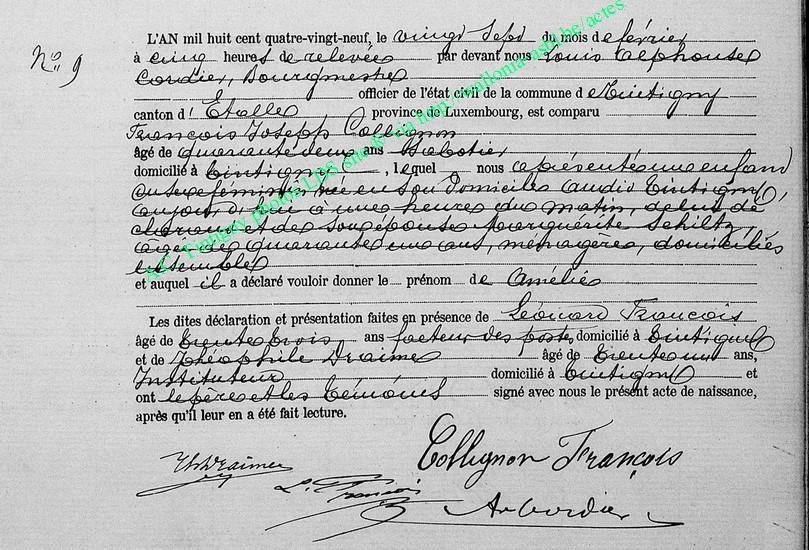 N° 9
L'AN mil huit cent quatre-vingt-neuf, le vingt sept du mois de février
à cinq heures de relevée par devant nous Louis Alphonse
Cordier, Bourgmestre
officier de l'état civil de la commune de Tintigny
canton d' Etalle province de Luxembourg, est comparu
François Joseph Collignon
âgé de quarante deux ans Sabotier
domicilié à Tintigny, lequel nous a présenté un enfant
du sexe féminin, née en son domicile audit Tintigny,
aujourd'hui à une heure du matin, de lui dé
clarant et de son épouse Marguérite Schiltz,
âgée de quarante un ans, ménagère, domiciliés
ensemble
et auquel il a déclaré vouloir donner le prénom de Amélie
Les dites déclaration et présentation faites en présence de Léonard François
âgé de trente trois ans facteur des postes domicilié à Tintigny
et de Théophile Draime âgé de trente un ans,
Instituteur domicilié à Tintigny et
ont le père et les témoins signé avec nous le présent acte de naissance,
après qu'il leur en a été fait lecture.
Th Draime Collignon François
L. François
A. Cordier
A.C. Tintigny photos LDS via http://wallonia-asbl.be/actes